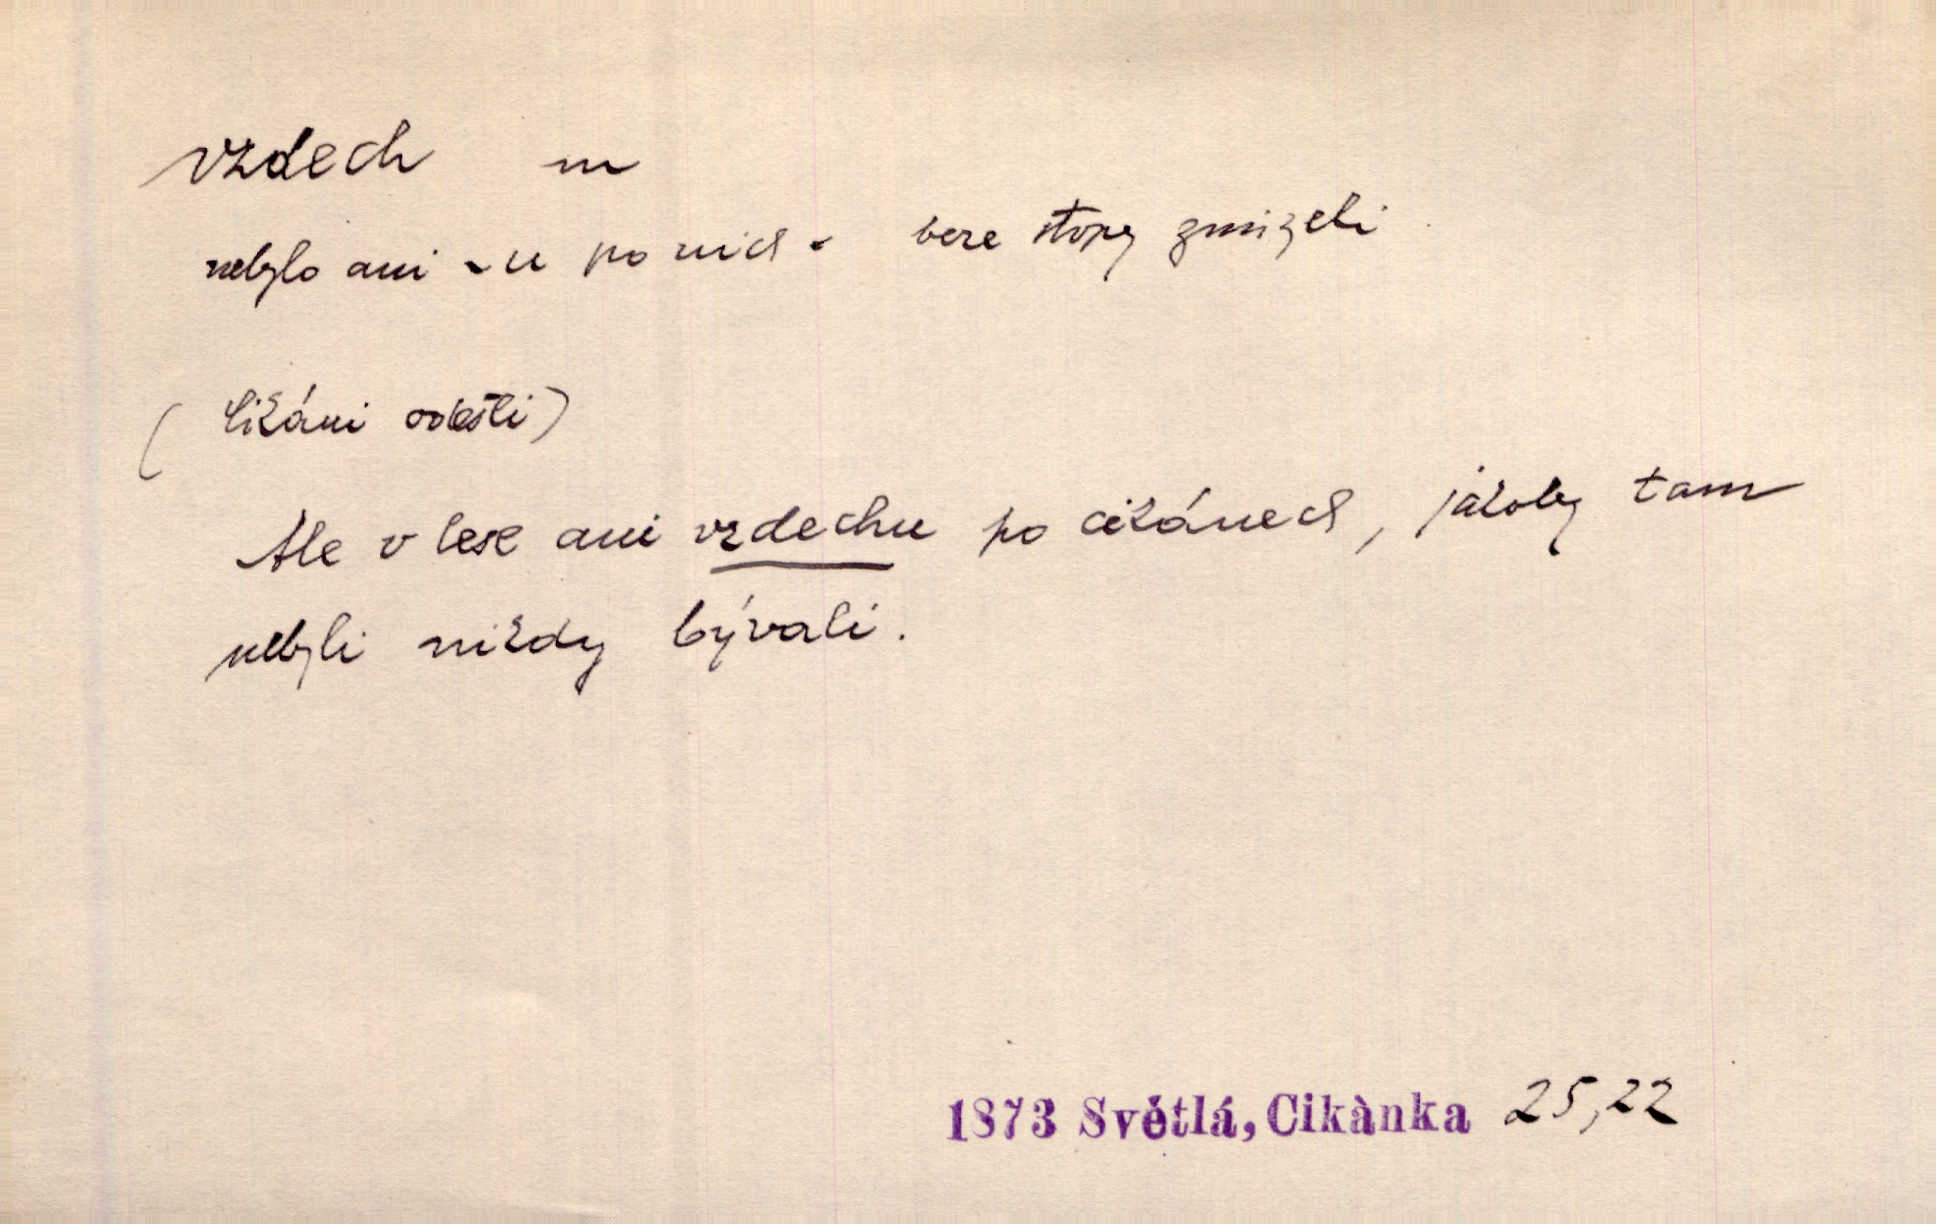 vzdech m
nebylo ani -u po nich - beze stopy zmizeli
(Cikáni odešli)
Ale v lese ani vzdechu po cikánech, jakoby tam
nebyli nikdy bývali.
1873 Světlá, Cikànka 25,22